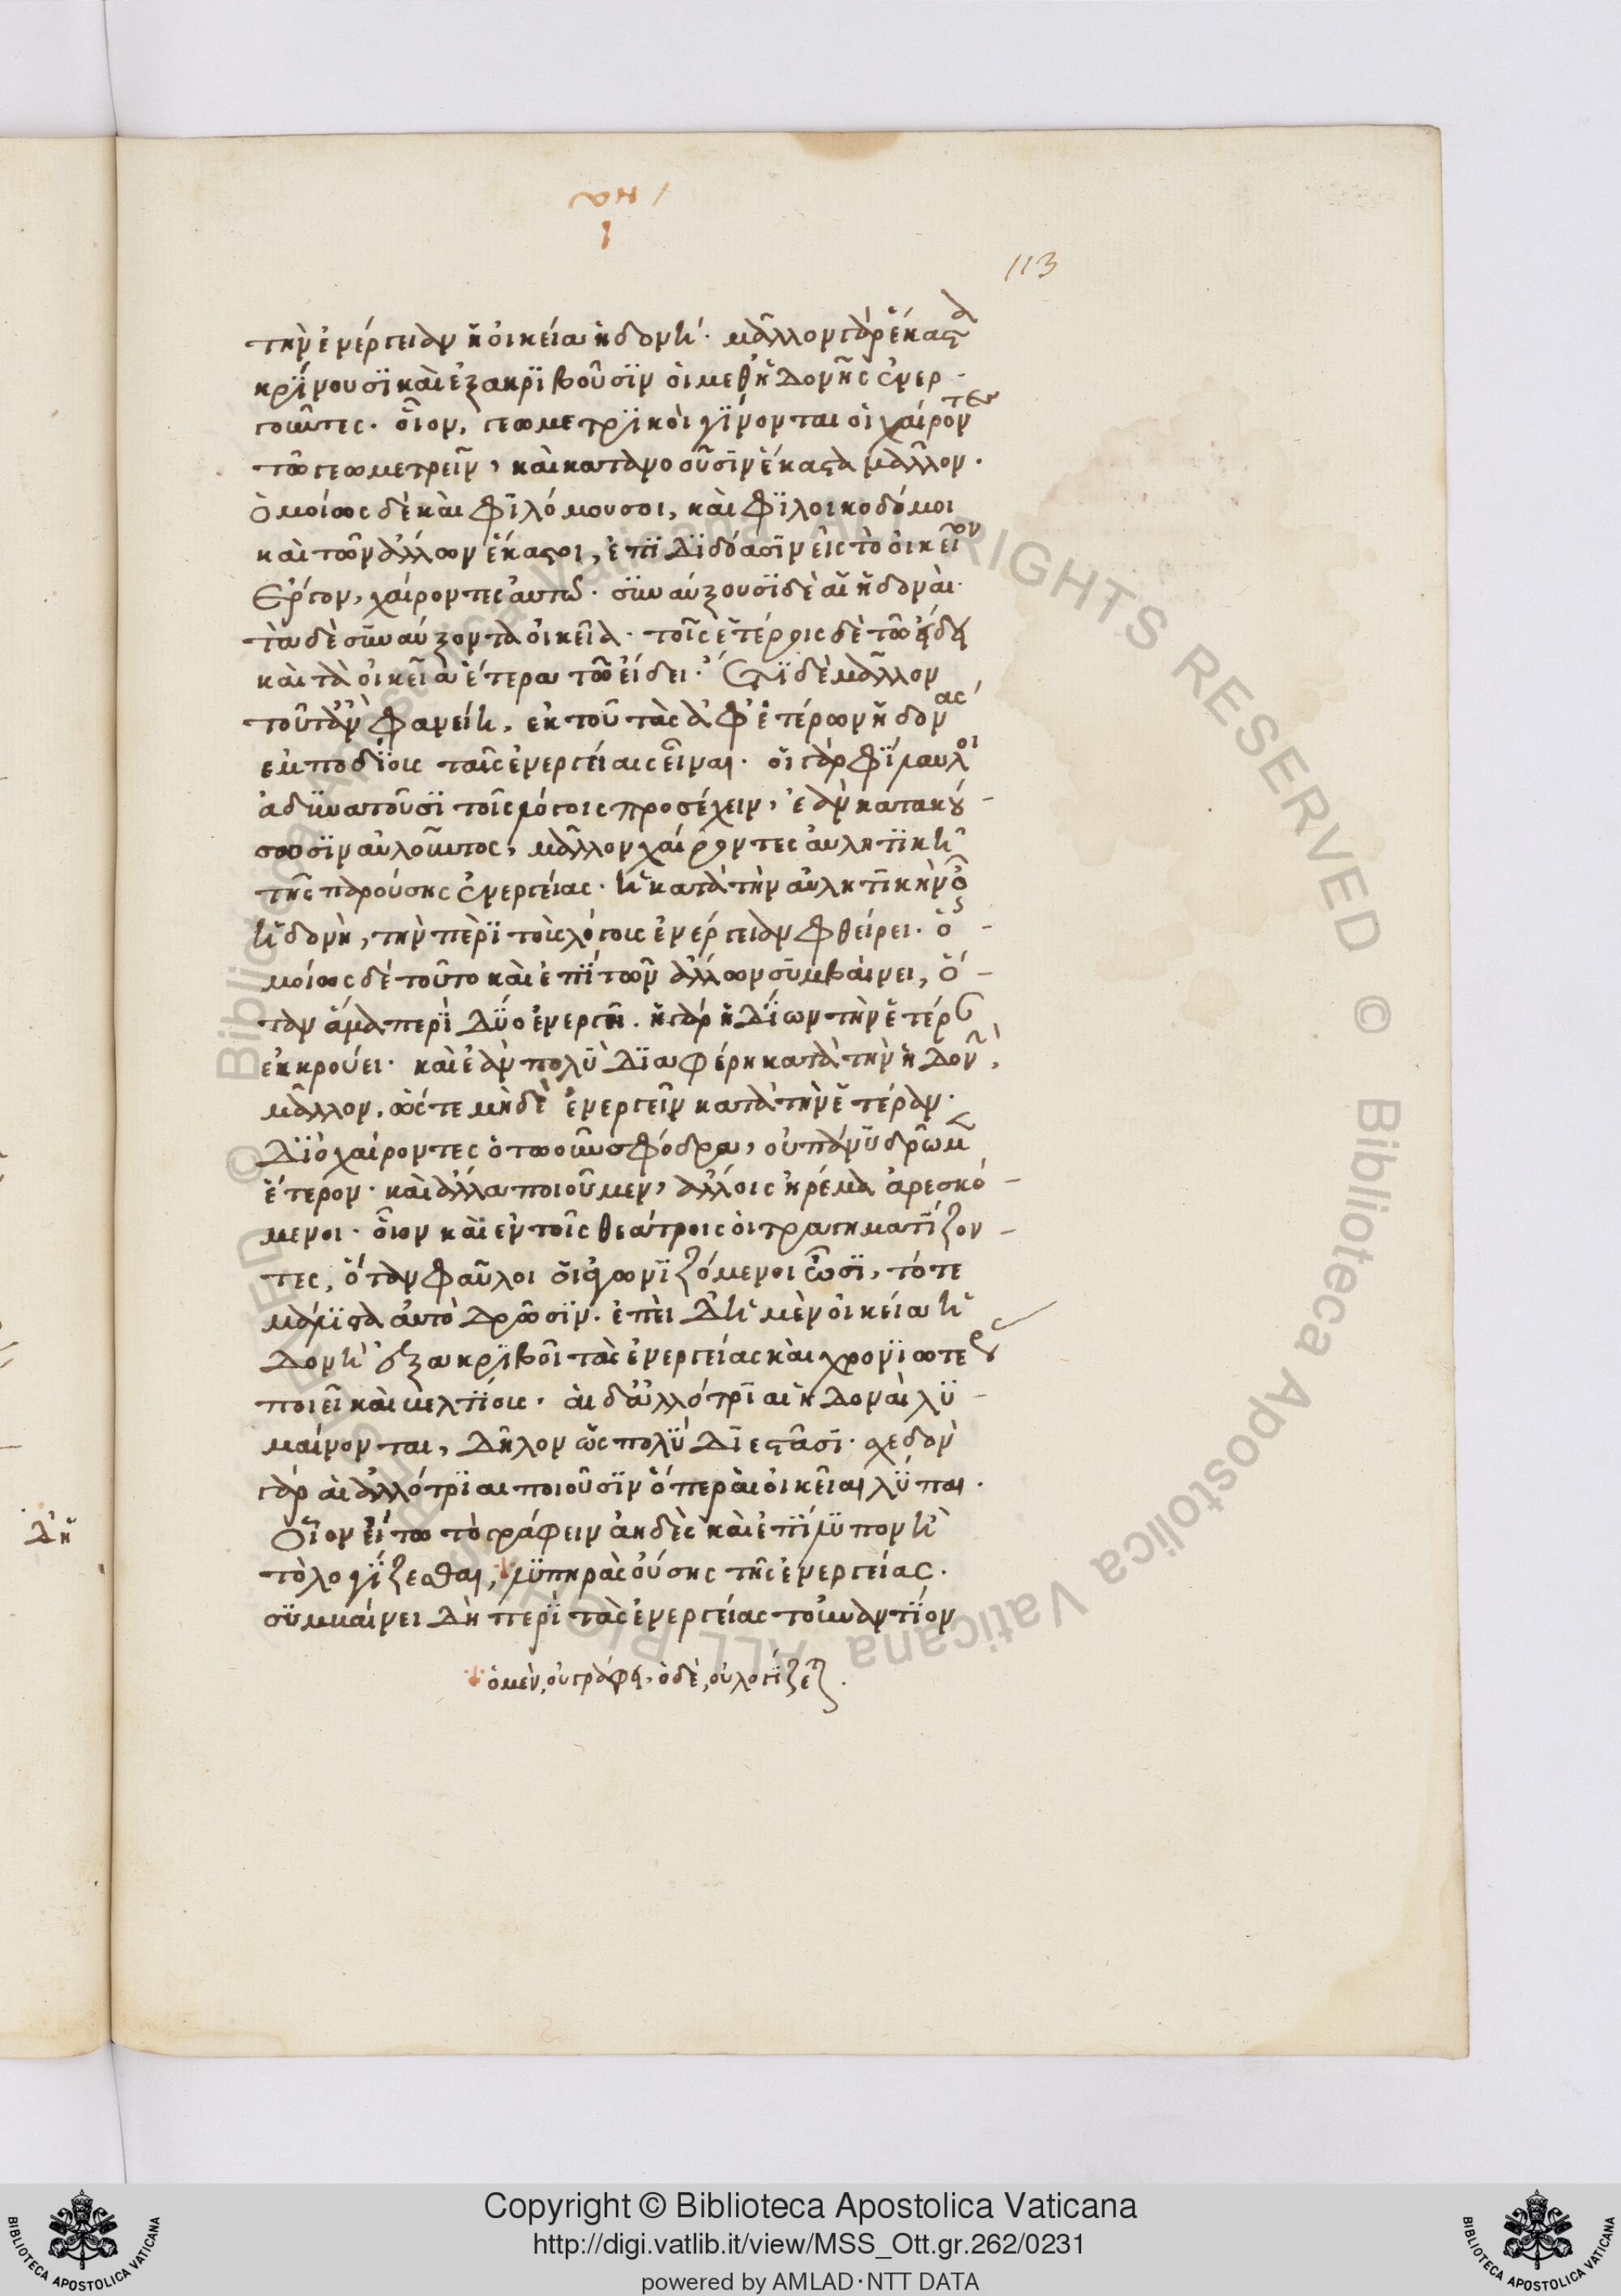 113
τὴν ἐνέργειαν ἡ οἰκεία ἡδονή· μᾶλλον γὰρ ἕκαστα
κρίνουσι καὶ ἐξακριβοῦσιν οἱ μεθ' ἡδονῆς ἐνερ-
γοῦντες· οἷον, γεωμετρικοὶ γίνονται οἱ χαίροντες
τῶ γεωμετρεῖν, καὶ κατανοοῦσιν ἕκαστα μᾶλλον·
ὁμοίως δὲ καὶ φιλόμουσοι, καὶ φιλοικοδόμοι
καὶ τῶν ἄλλων ἕκαστοι, ἐπιδιδόασιν εἰς τὸ οἰκεῖον
ἔργον, χαίροντες αὐτῶ· συναύξουσι δὲ αἱ ἡδοναί·
τὰ δὲ συναύξοντα οἰκεῖα· τοῖς ἑτέροις δὲ τῶ εἴδει
καὶ τὰ οἰκεῖα ἕτερα τῶ εἴδει· ἔτι δὲ μᾶλλον
τοῦτ' ἂν φανείη, ἐκ τοῦ τὰς ἀφ' ἑτέρων ἡδονὰς
ἐμποδίους ταῖς ἐνεργείαις εἶναι· οἱ γὰρ φίλαυλοι
ἀδυνατοῦσι τοῖς λόγοις προσέχειν, ἐὰν κατακού-
σωσιν αὐλοῦντος, μᾶλλον χαίροντες αὐλητικῆ
τῆς παρούσης ἐνεργείας· ἡ κατὰ τὴν αὐλητικὴν οὖν
ἡδονὴ, τὴν περὶ τοὺς λόγους ἐνέργειαν φθείρει· ὁ-
μοίως δὲ τοῦτο καὶ ἐπὶ τῶν ἄλλων συμβαίνει, ὅ-
ταν ἅμα περὶ δύο ἐνεργῆ· ἡ γὰρ ἡδίων τὴν ἑτέραν
ἐκκρούει· καὶ ἐὰν πολὺ διαφέρη κατὰ τὴν ἡδονὴν,
μᾶλλον, ὥστε μηδὲ ἐνεργεῖν κατὰ τὴν ἑτέραν·
διὸ χαίροντες ὁτωοῦν σφόδρα, οὐ πάνυ δρῶμεν
ἕτερον· καὶ ἄλλα ποιοῦμεν, ἄλλοις ἠρέμα ἀρεσκό-
μενοι· οἷον καὶ ἐν τοῖς θεάτροις οἱ τραγηματίζον-
τες, ὅταν φαῦλοι οἱ ἀγωνιζόμενοι ὦσι, τότε
μάλιστα αὐτὸ δρῶσιν· ἐπεὶ δ' ἡ μὲν οἰκεία ἡ
δονὴ ἐξακριβοῖ τὰς ἐνεργείας καὶ χρονιωτέρας
ποιεῖ καὶ βελτίους· αἱ δ' ἀλλότριαι ἡδοναὶ λυ-
μαίνονται, δῆλον ὡς πολὺ διεστᾶσι· σχεδὸν
γὰρ αἱ ἀλλότριαι ποιοῦσιν ὅπερ αἱ οἰκεῖαι λύπαι·
οἷον εἴ τω τὸ γράφειν ἀηδὲς καὶ ἐπίλυπον ἢ
τὸ λογίζεσθαι, λυπηρᾶς οὔσης τῆς ἐνεργείας·
συμβαίνει δὴ περὶ τὰς ἐνεργείας τοὐναντίον
ὁ μὲν, οὐ γράφει, ὁ δὲ, οὐ λογίζεται.
Copyright © Biblioteca Apostolica Vaticana
http://digi.vatlib.it/view/MSS_Ott.gr.262/0231
powered by AMLAD·NTT DATA